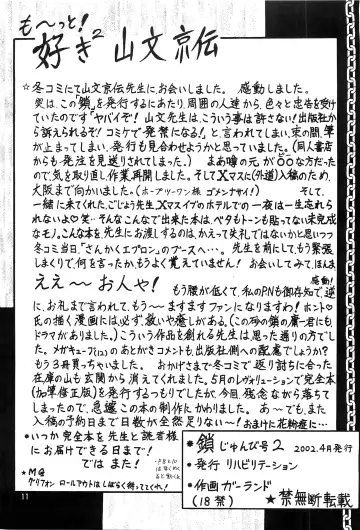 も〜っと!
好き2 山文京伝
☆冬コミにて山文京伝先生にお会いしました。感動しました。
実は、この「鎖」を発行するにあたり、周囲の人達から、色々と忠告を受け
ていたのです「ヤバイぞ!山文先生は、こういう事は許さない!出版社か
ら訴えられるぞ!コミケで発禁になる!」と、言われてしまい、束の間、筆
が止まってしまい、発行も見合わせようかと思っていました。(同人書店
からも発注を見送りされてしまった。) まあ噂の元が〇〇な方だった
ので気を取り直し作業再開しました。そしてXマスに(外道)入稿のため、
大阪まで向かいました。(ホープツーワン様ゴメンナサイ!) そして、
一緒に来てくれた、ごじょう先生、Xマスイブのホテルでの一夜は一生忘れら
れないよ♡笑…そんなこんなで出来た本は、ベタもトーンも貼ってない未完成
なモノ。こんな本を先生にお渡しするのは、かえって失礼ではないかと思いつつ
冬コミ当日、「さんかくエプロン」のブースへ…。先生を前にして、もう緊張
しまくりで、何を言ったか、もうよく覚えていません!お会いしてみて、ほんま
ええ〜お人や! 感動!
もう腰が低くて、私のPNも御存知で、逆
に、お礼まで言われて、もう〜ますますファンになりますわ!ホント♡
氏の描く漫画には必ず、救いや癒しがある。(この頃の鎖の庸一君にも
ドラマがありました。)こういう作品を創れる先生は思った通りの方でし
た。メガキューブ(12)のあとがきコメントも、出版社側への配慮でしょうか?
もう3冊買っちゃいました。 おかげさまで冬コミで返り討ちに会った
在庫の山も玄関から消えてくれました。5月のレヴォリューションで完全本
(加筆修正版)を発行するつもりでしたが、今回、残念ながら落ちて
しまったので、急遽この本の制作にかかりました。あ〜でも、また
入稿の予約日まで日数が全然足りない〜!おまけに花粉症に…
・いつか完全本を先生と読者様
にお届けできる日まで!
では また!
★MG
グリフオン ロールアウトはしばらく待っててくれ!
・鎖 じゅんび号2 2002.4月発行
・発行 リハビリテーション
・作画ガーランド
(18禁) ★禁無断転載
11